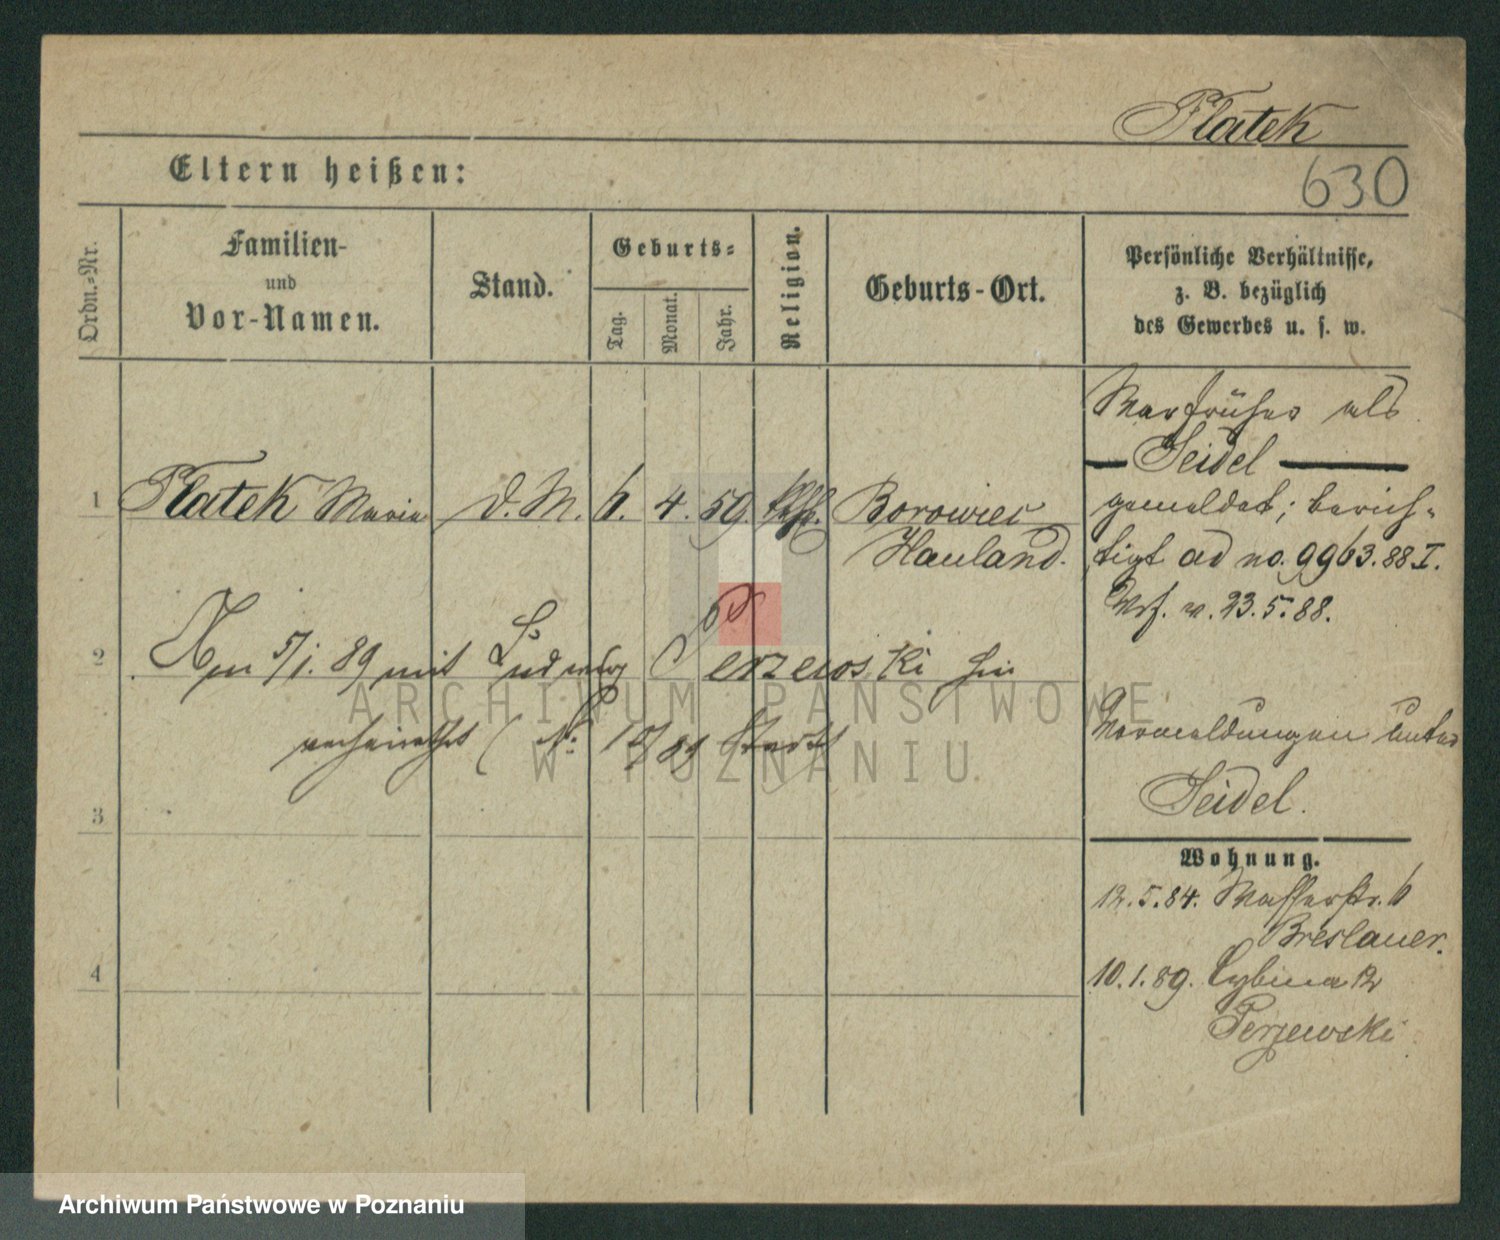 Platek
630
Eltern heißen:
Ordn.-Nr.
Familien-
und
Vor-Namen.
Stand.
Geburts-
Tag.
Monat.
Jahr.
Religion.
Geburts-Ort.
Persönliche Verhältnisse,
z. B. bezüglich
des Gewerbes u. s. w.
1 Platek Marie D. M. 6. 4. 59. kth. Borowiec
Hauland.
War früher als
Seidel
gemeldet; berich-
tigt ad no. 9963. 88 I.
Vrf. v. 23.5.88.
2 Am 5/1. 89 mit Ludwig Perzewski hier
verheirathet (N: 15/89 Stadt
Vormeldungen unter
Seidel.
3
4
Wohnung.
12.5.84. Wasserstr. 6
Breslauer.
10.1.89. Cybina 12
Perzewski
ARCHIWUM PAŃSTWOWE
W POZNANIU
Archiwum Państwowe w Poznaniu